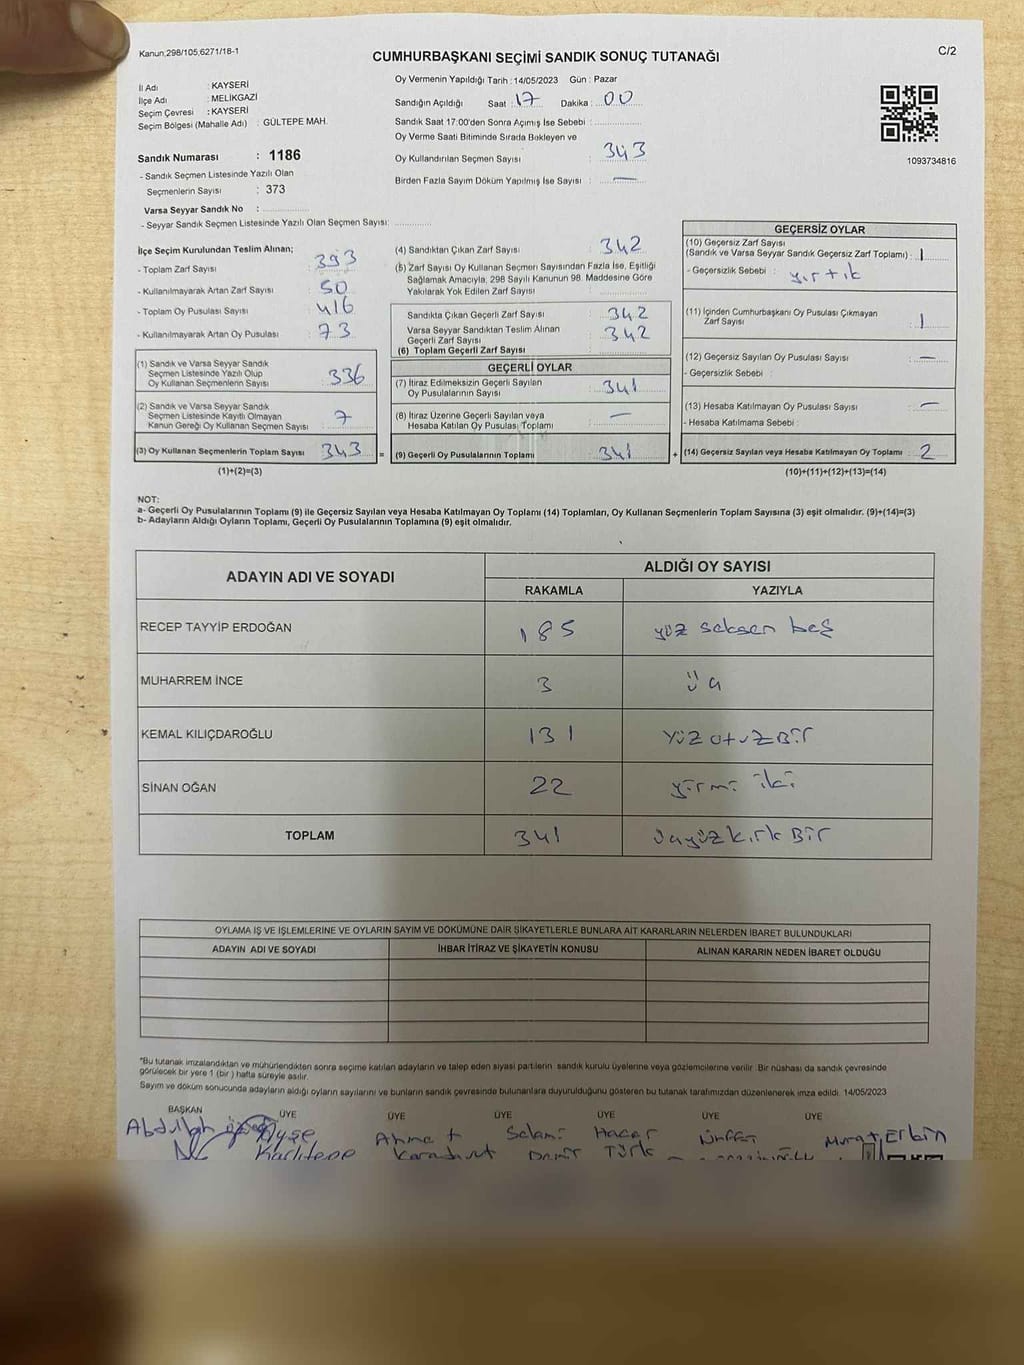 Kanun;298/105,6271/18-1
CUMHURBAŞKANI SEÇİMİ SANDIK SONUÇ TUTANAĞI
C/2
İl Adı : KAYSERİ
İlçe Adı : MELİKGAZİ
Seçim Çevresi : KAYSERİ
Seçim Bölgesi (Mahalle Adı) : GÜLTEPE MAH.
Sandık Numarası : 1186
- Sandık Seçmen Listesinde Yazılı Olan
Seçmenlerin Sayısı : 373
Varsa Seyyar Sandık No :
- Seyyar Sandık Seçmen Listesinde Yazılı Olan Seçmen Sayısı:
Oy Vermenin Yapıldığı Tarih :14/05/2023 Gün : Pazar
Sandığın Açıldığı Saat : 17 Dakika : 00
Sandık Saat 17:00'den Sonra Açımış İse Sebebi :
Oy Verme Saati Bitiminde Sırada Bekleyen ve
Oy Kullandırılan Seçmen Sayısı : 343
Birden Fazla Sayım Döküm Yapılmış İse Sayısı : —
1093734816
İlçe Seçim Kurulundan Teslim Alınan;
- Toplam Zarf Sayısı : 393
- Kullanılmayarak Artan Zarf Sayısı : 50
- Toplam Oy Pusulası Sayısı : 416
- Kullanılmayarak Artan Oy Pusulası : 73
(1) Sandık ve Varsa Seyyar Sandık
Seçmen Listesinde Yazılı Olup
Oy Kullanan Seçmenlerin Sayısı : 336
(2) Sandık ve Varsa Seyyar Sandık
Seçmen Listesinde Kayıtlı Olmayan
Kanun Gereği Oy Kullanan Seçmen Sayısı : 7
(3) Oy Kullanan Seçmenlerin Toplam Sayısı : 343 =
(1)+(2)=(3)
(4) Sandıktan Çıkan Zarf Sayısı : 342
(5) Zarf Sayısı Oy Kullanan Seçmen Sayısından Fazla İse, Eşitliği
Sağlamak Amacıyla, 298 Sayılı Kanunun 98. Maddesine Göre
Yakılarak Yok Edilen Zarf Sayısı :
Sandıkta Çıkan Geçerli Zarf Sayısı : 342
Varsa Seyyar Sandıktan Teslim Alınan
Geçerli Zarf Sayısı : 342
(6) Toplam Geçerli Zarf Sayısı :
GEÇERLİ OYLAR
(7) İtiraz Edilmeksizin Geçerli Sayılan
Oy Pusulalarının Sayısı : 341
(8) İtiraz Üzerine Geçerli Sayılan veya
Hesaba Katılan Oy Pusulası Toplamı : —
(9) Geçerli Oy Pusulalarının Toplamı : 341 +
GEÇERSİZ OYLAR
(10) Geçersiz Zarf Sayısı
(Sandık ve Varsa Seyyar Sandık Geçersiz Zarf Toplamı) : 1
- Geçersizlik Sebebi : yırtık
(11) İçinden Cumhurbaşkanı Oy Pusulası Çıkmayan
Zarf Sayısı : 1
(12) Geçersiz Sayılan Oy Pusulası Sayısı : —
- Geçersizlik Sebebi :
(13) Hesaba Katılmayan Oy Pusulası Sayısı : —
- Hesaba Katılmama Sebebi :
(14) Geçersiz Sayılan veya Hesaba Katılmayan Oy Toplamı : 2
(10)+(11)+(12)+(13)=(14)
NOT:
a- Geçerli Oy Pusulalarının Toplamı (9) ile Geçersiz Sayılan veya Hesaba Katılmayan Oy Toplamı (14) Toplamları, Oy Kullanan Seçmenlerin Toplam Sayısına (3) eşit olmalıdır. (9)+(14)=(3)
b- Adayların Aldığı Oyların Toplamı, Geçerli Oy Pusulalarının Toplamına (9) eşit olmalıdır.
ADAYIN ADI VE SOYADI
ALDIĞI OY SAYISI
RAKAMLA YAZIYLA
RECEP TAYYİP ERDOĞAN 185 yüz seksen beş
MUHARREM İNCE 3 üç
KEMAL KILIÇDAROĞLU 131 YÜZ OTUZ BİR
SİNAN OĞAN 22 yirmi iki
TOPLAM 341 üçyüz kırk BİR
OYLAMA İŞ VE İŞLEMLERİNE VE OYLARIN SAYIM VE DÖKÜMÜNE DAİR ŞİKAYETLERLE BUNLARA AİT KARARLARIN NELERDEN İBARET BULUNDUKLARI
ADAYIN ADI VE SOYADI İHBAR İTİRAZ VE ŞİKAYETİN KONUSU ALINAN KARARIN NEDEN İBARET OLDUĞU
*Bu tutanak imzalandıktan ve mühürlendikten sonra seçime katılan adayların ve talep eden siyasi partilerin sandık kurulu üyelerine veya gözlemcilerine verilir. Bir nüshası da sandık çevresinde
görülecek bir yere 1 (bir ) hafta süreyle asılır.
Sayım ve döküm sonucunda adayların aldığı oyların sayılarını ve bunların sandık çevresinde bulunanlara duyurulduğunu gösteren bu tutanak tarafımızdan düzenlenerek imza edildi. 14/05/2023
BAŞKAN ÜYE ÜYE ÜYE ÜYE ÜYE ÜYE
Abdullah Ayşe Ahmet Selami Hacer Murat Erbin
Karlıtepe Demir Türk